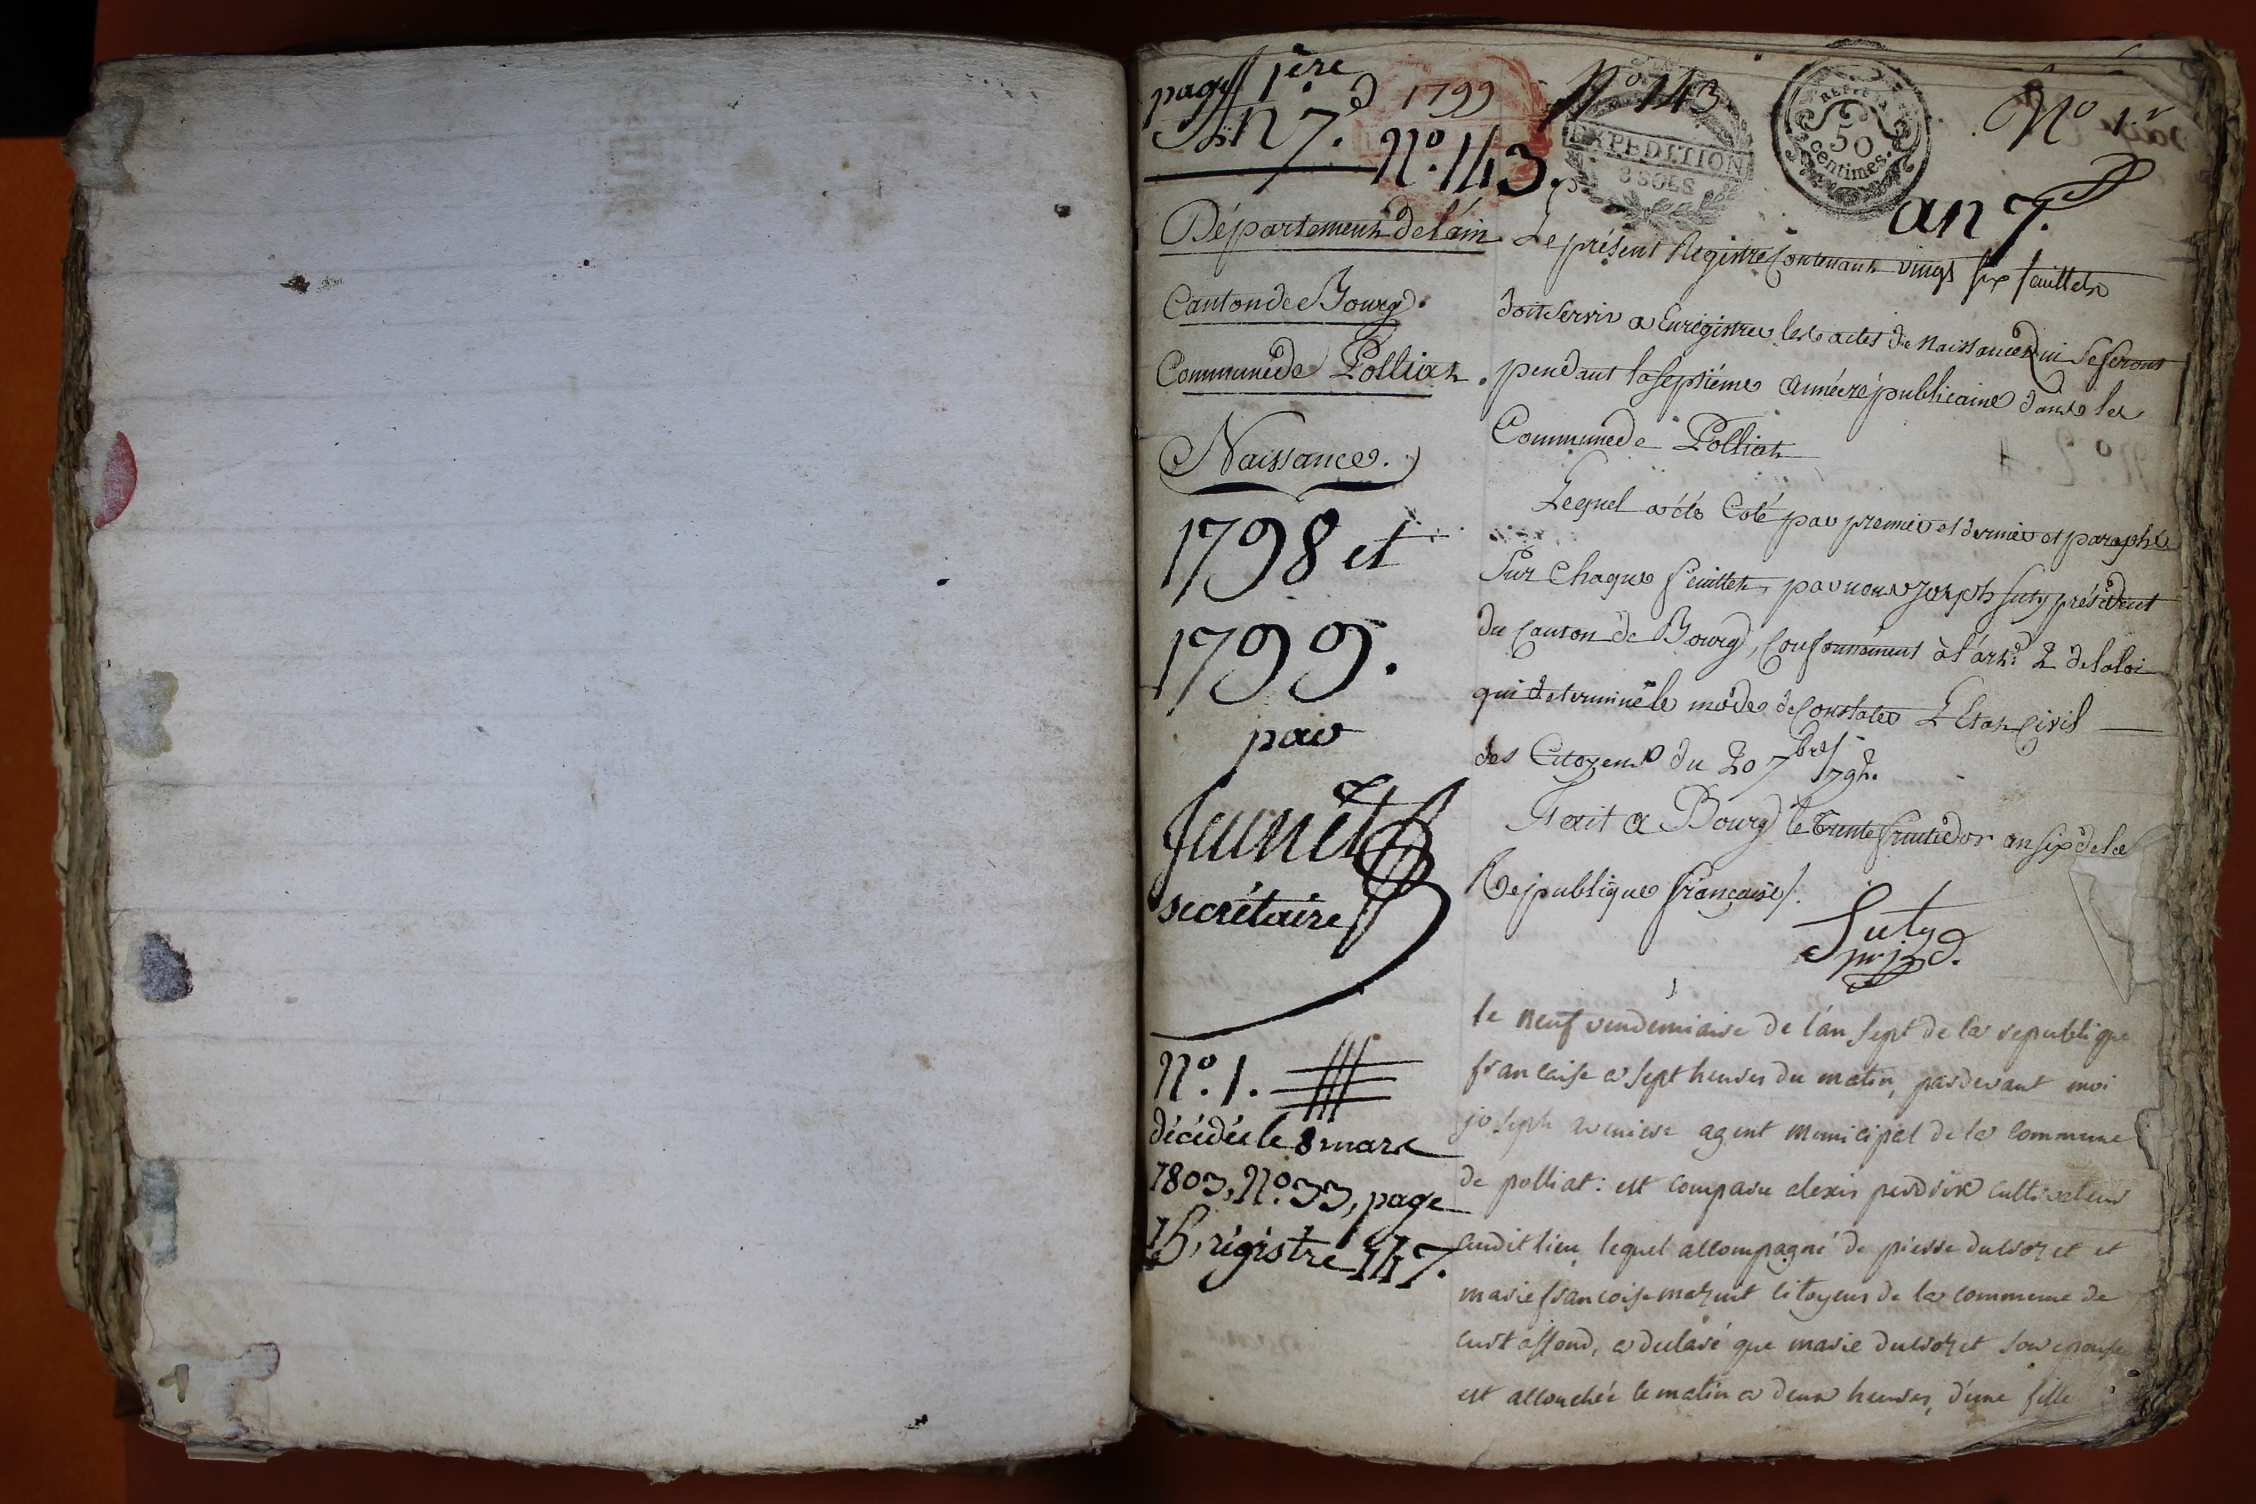 page 1ère
An 7.d 1799
N°. 143.
N° 143
EXPEDITION
8 SOLS
50
centimes.
N° 1.r
an 7.
Département de l'ain
Canton de Bourg.
Commune de Polliat.
Naissance.
1798 et
1799.
par
secrétaire
Le présent Registre Contenant vingt six feuillets
doit servir a Enregistrer les actes de naissance qui se feront
pendant la septiéme année républicaine dans la
Commune de Polliat
Lequel a été Coté par premier et dernier et paraphé
Sur Chaque feuillet, par nous joseph Suty président
du Canton de Bourg, Conformément à l'art. 2 de la loi
qui determine le mode de Constater L'Etat Civil
des Citoyens du 20 7bre 1792.
Fait a Bourg le trente fructidor an six de la
Republique française/.
Suty
le neuf vendemiaire de l'an sept de la republique
francaise a sept heures du matin, pardevant moi
joseph agent municipal de la commune
de polliat : est comparu alexis perdrix cultivateur
audit lieu lequel accompagné de pierre duvozet et
marie francoise citoyens de la commune de
curtaffond, a declaré que marie duvozet son epouse
est accouchée le matin a deux heures, d'une fille
N°. 1.
décédée le 8 mars
1803, N°. 33, page
15, régistre 147.
1